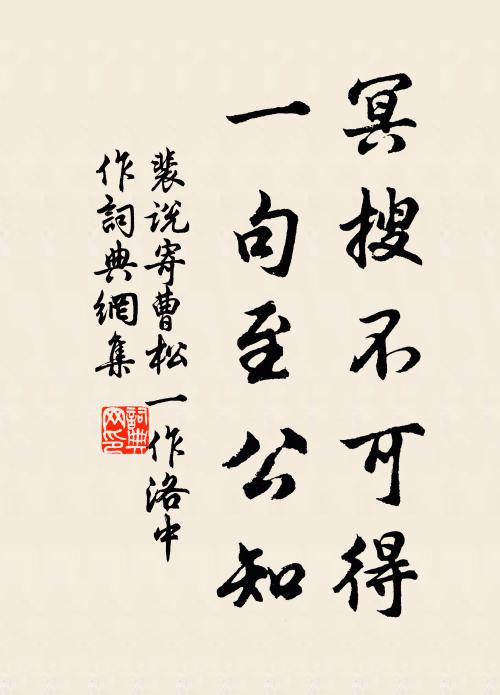 冥搜不可得
一句至公知
裴说寄曹松一作洛中
作詞典網集
詞典网印